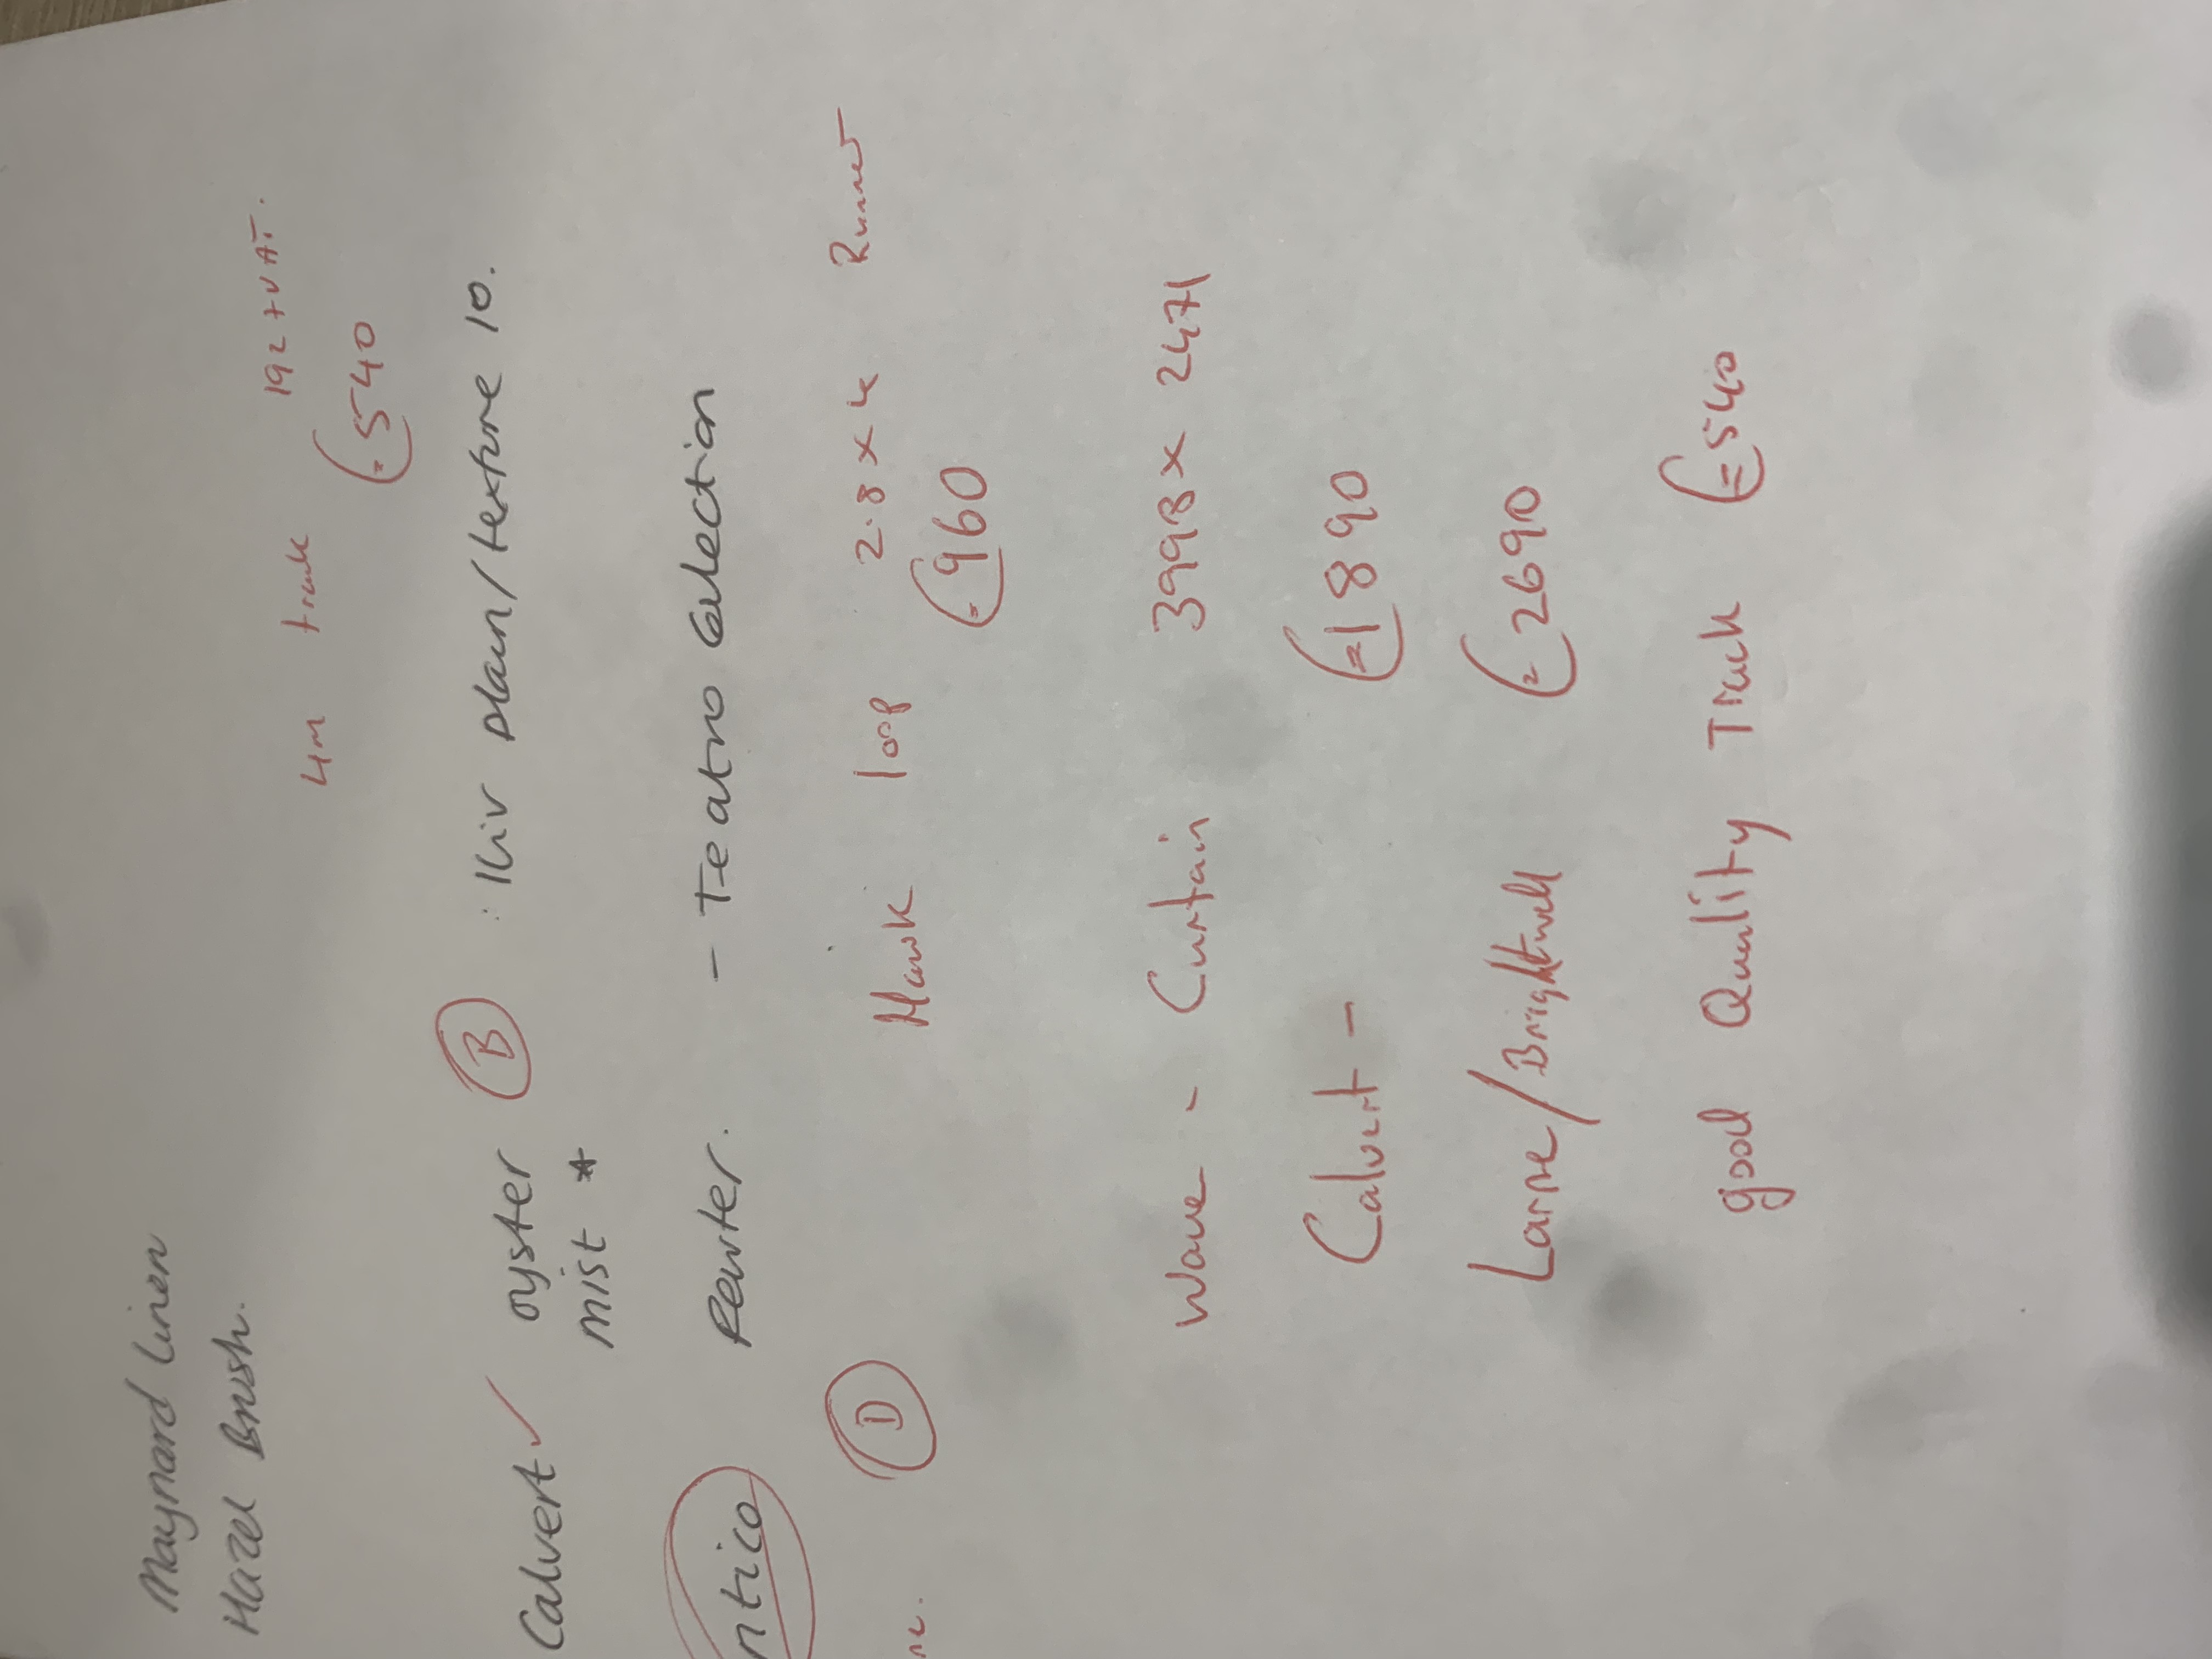 Maynard Linen
Hazel Brush.
4m track 192 + VAT.
(= 540
Calvert ✓ oyster mist * (B) : Iliv plain/texture 10.
ntico Pewter. - Teatro Collection
(D) Hawk loop 2.8 x 4 Runner
(= 960
Wave - Curtain 3998 x 2471
Calvert - (= 1890
Larne/Brightwell (= 2690
good Quality Track (= 540